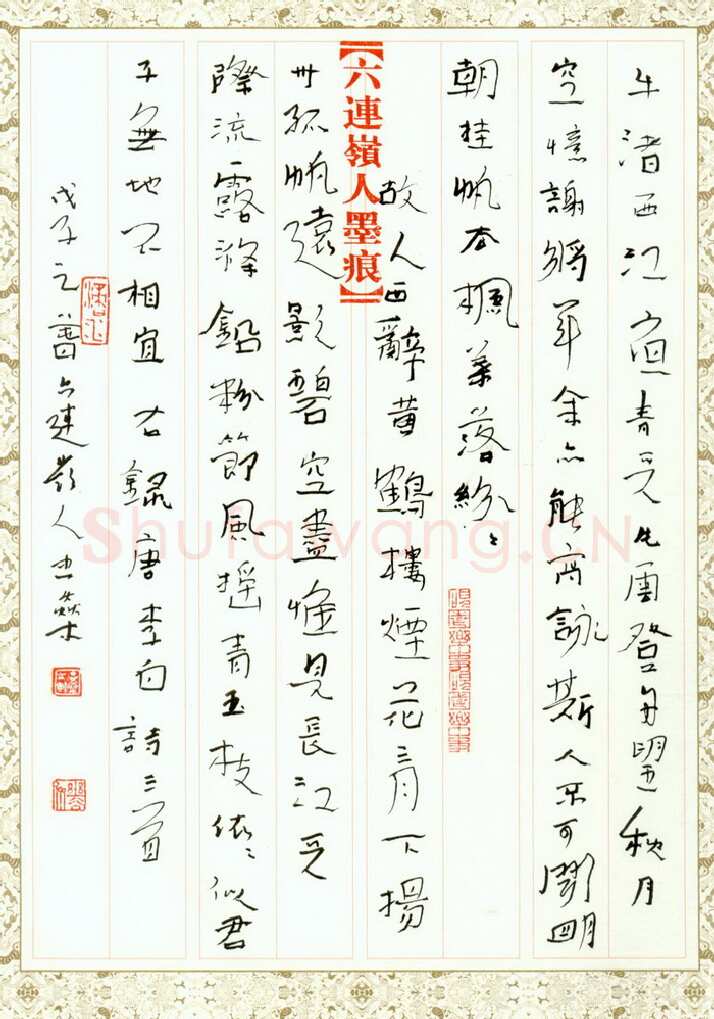 牛渚西江夜青天片雲登舟望秋月
空憶謝將軍余亦能高詠斯人不可聞明
朝挂帆去楓葉落紛〻
【六連嶺人墨痕】
故人西辭黄鶴樓煙花三月下揚
州孤帆遠影碧空盡惟見長江天
際流露滌鉛粉節風摇青玉枝依〻似君
子無地不相宜右録唐李白詩三首
戊子之春六連嶺人
Shufawang.CN